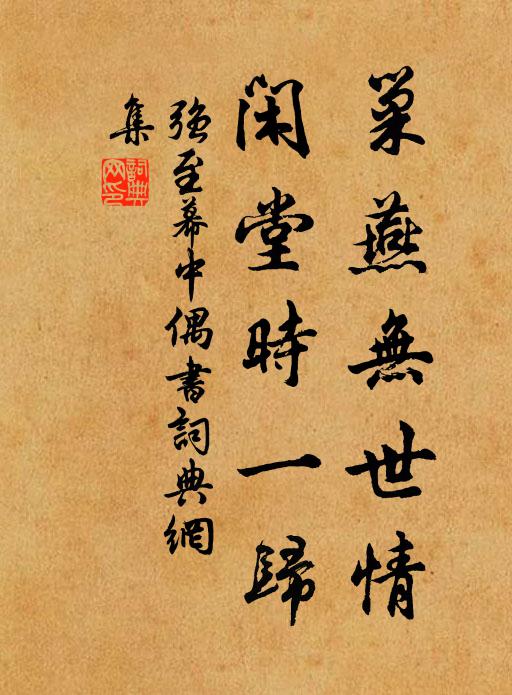 巢燕無世情
閑堂時一歸
強至幕中偶書詞典網
集
詞典
网印